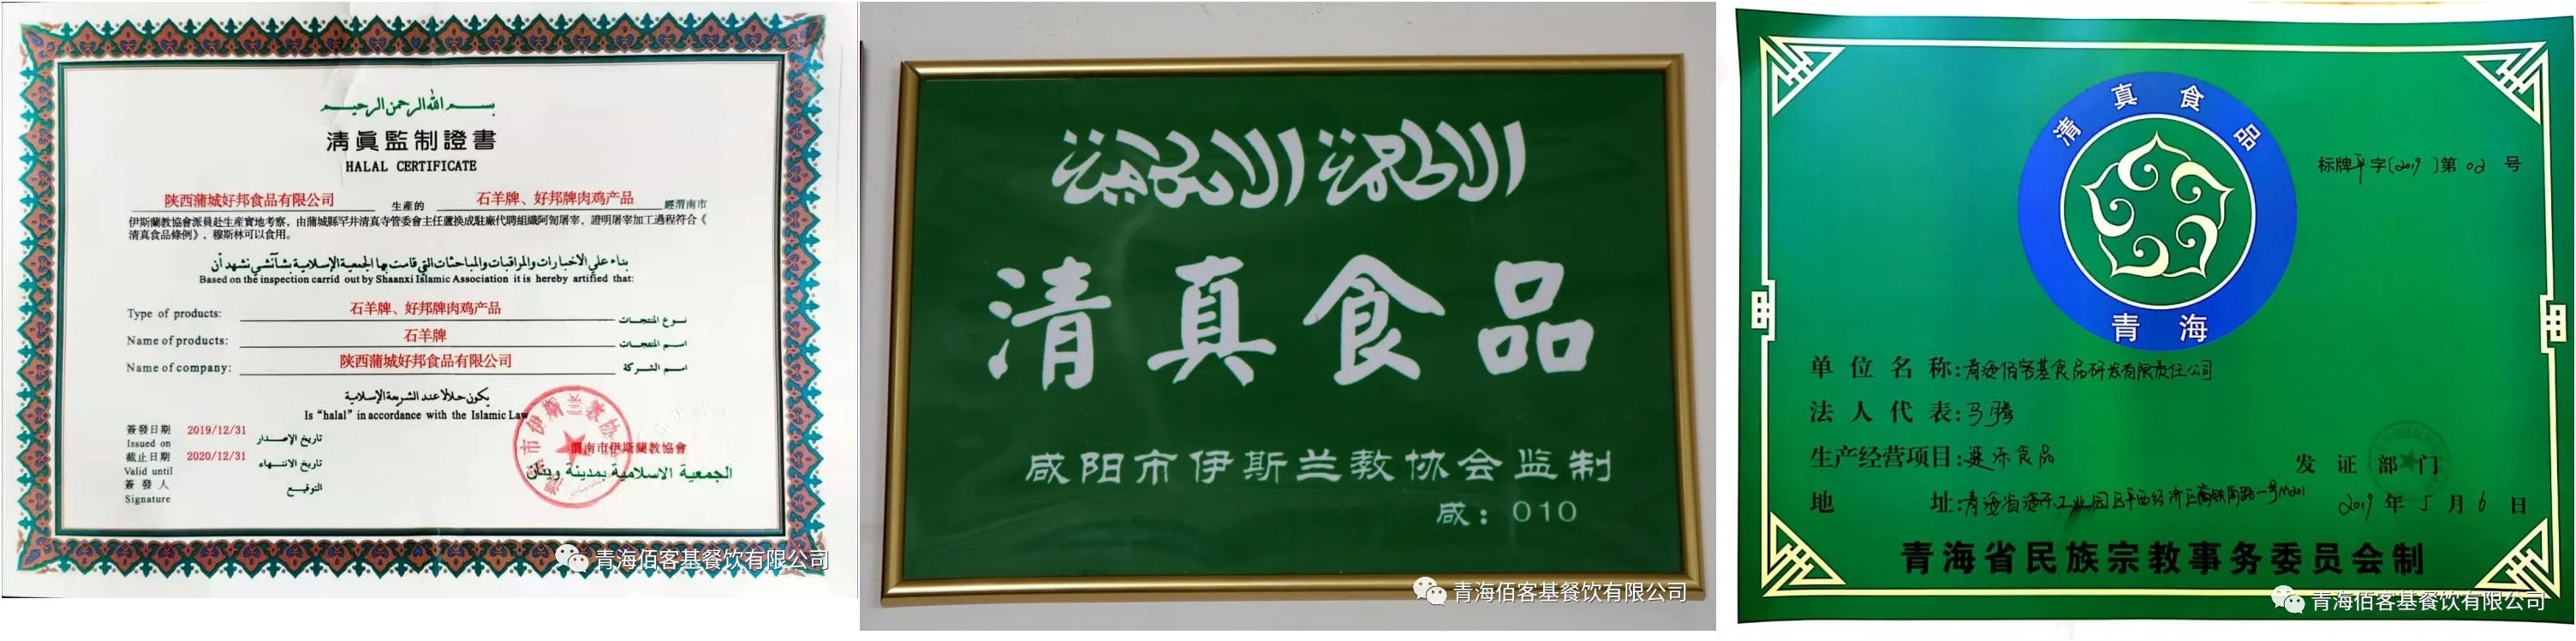 بسم الله الرحمن الرحيم
清眞監制證書
HALAL CERTIFICATE
陕西蒲城好邦食品有限公司 生產的 石羊牌、好邦牌肉鸡产品 經渭南市
伊斯蘭教協會派員赴生產實地考察，由蒲城縣罕井清真寺管委會主任蘆换成駐廠代聘組織阿訇屠宰，證明屠宰加工過程符合《
清真食品條例》，穆斯林可以食用。
بناء علي الأخبارات والمراقبات والمباحثات التي قامت بها الجمعية الإسلامية بشآنشي نشهد أن
Based on the inspection carrid out by Shaanxi Islamic Association it is hereby artified that:
Type of products: 石羊牌、好邦牌肉鸡产品 نوع المنتجات
Name of products: 石羊牌 اسم المنتجات
Name of company: 陕西蒲城好邦食品有限公司 اسم الشركة
يكون حلالا عند الشرعة الإسلامية
Is "halal" in accordance with the Islamic Law
簽發日期 2019/12/31 تاريخ الإصدار
Issued on
截止日期 2020/12/31 تاريخ الانتهاء
Valid until
簽發人 التوقيع
Signature
渭南市伊斯蘭教協會
الجمعية الاسلامية بمدينة وينان
青海佰客基餐饮有限公司
清真食品
咸阳市伊斯兰教协会监制
咸：010
青海佰客基餐饮有限公司
清真食品
青海
标牌平字[2019]第02号
单位名称:青海佰客基食品研发有限责任公司
法人代表:马腾
生产经营项目:速冻食品
发证部门
地址:青海省海东工业园区平西经济区
2019年5月6日
青海省民族宗教事务委员会制
青海佰客基餐饮有限公司